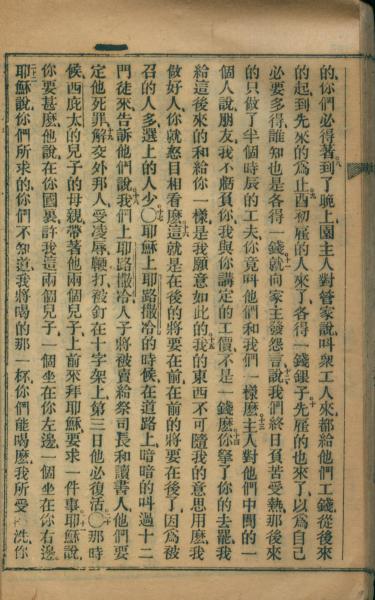 的、你們必得著到了晚上園主人對管家說叫衆工人來都給他們工錢從後來
的起到先來的為止酉初雇的人來了各得一錢銀子先雇的也來了以為自己
必要多得誰知也是各得一錢就向家主發怨言說我們終日負苦受熱那後來
的只做了半個時辰的工夫你竟叫他們和我們一樣麽主人對他們中間的一
個人說朋友我不虧負你我與你講定的工價不是一錢麽你拏了你的去罷我
給這後來的和給你一樣是我願意如此的我的東西不可隨我的意思用麽我
做好人你就怒目相看麽這就是在後的將要在前在前的將要在後了因為被
召的人多選上的人少〇耶穌上耶路撒冷的時候在道路上暗暗的叫過十二
門徒來告訴他們說我們上耶路撒冷人子將被賣給祭司長和讀書人他們要
定他死罪解交外邦人受凌辱鞭打被釘在十字架上第三日他必復活〇那時
候西庇太的兒子的母親帶著他兩個兒子上前來拜耶穌要求一件事耶穌說
你要甚麽他說在你國裏許我這兩個兒子一個坐在你左邊一個坐在你右邊
耶穌說你們所求的你們不知道我將喝的那一杯你們能喝麽我所受洗你